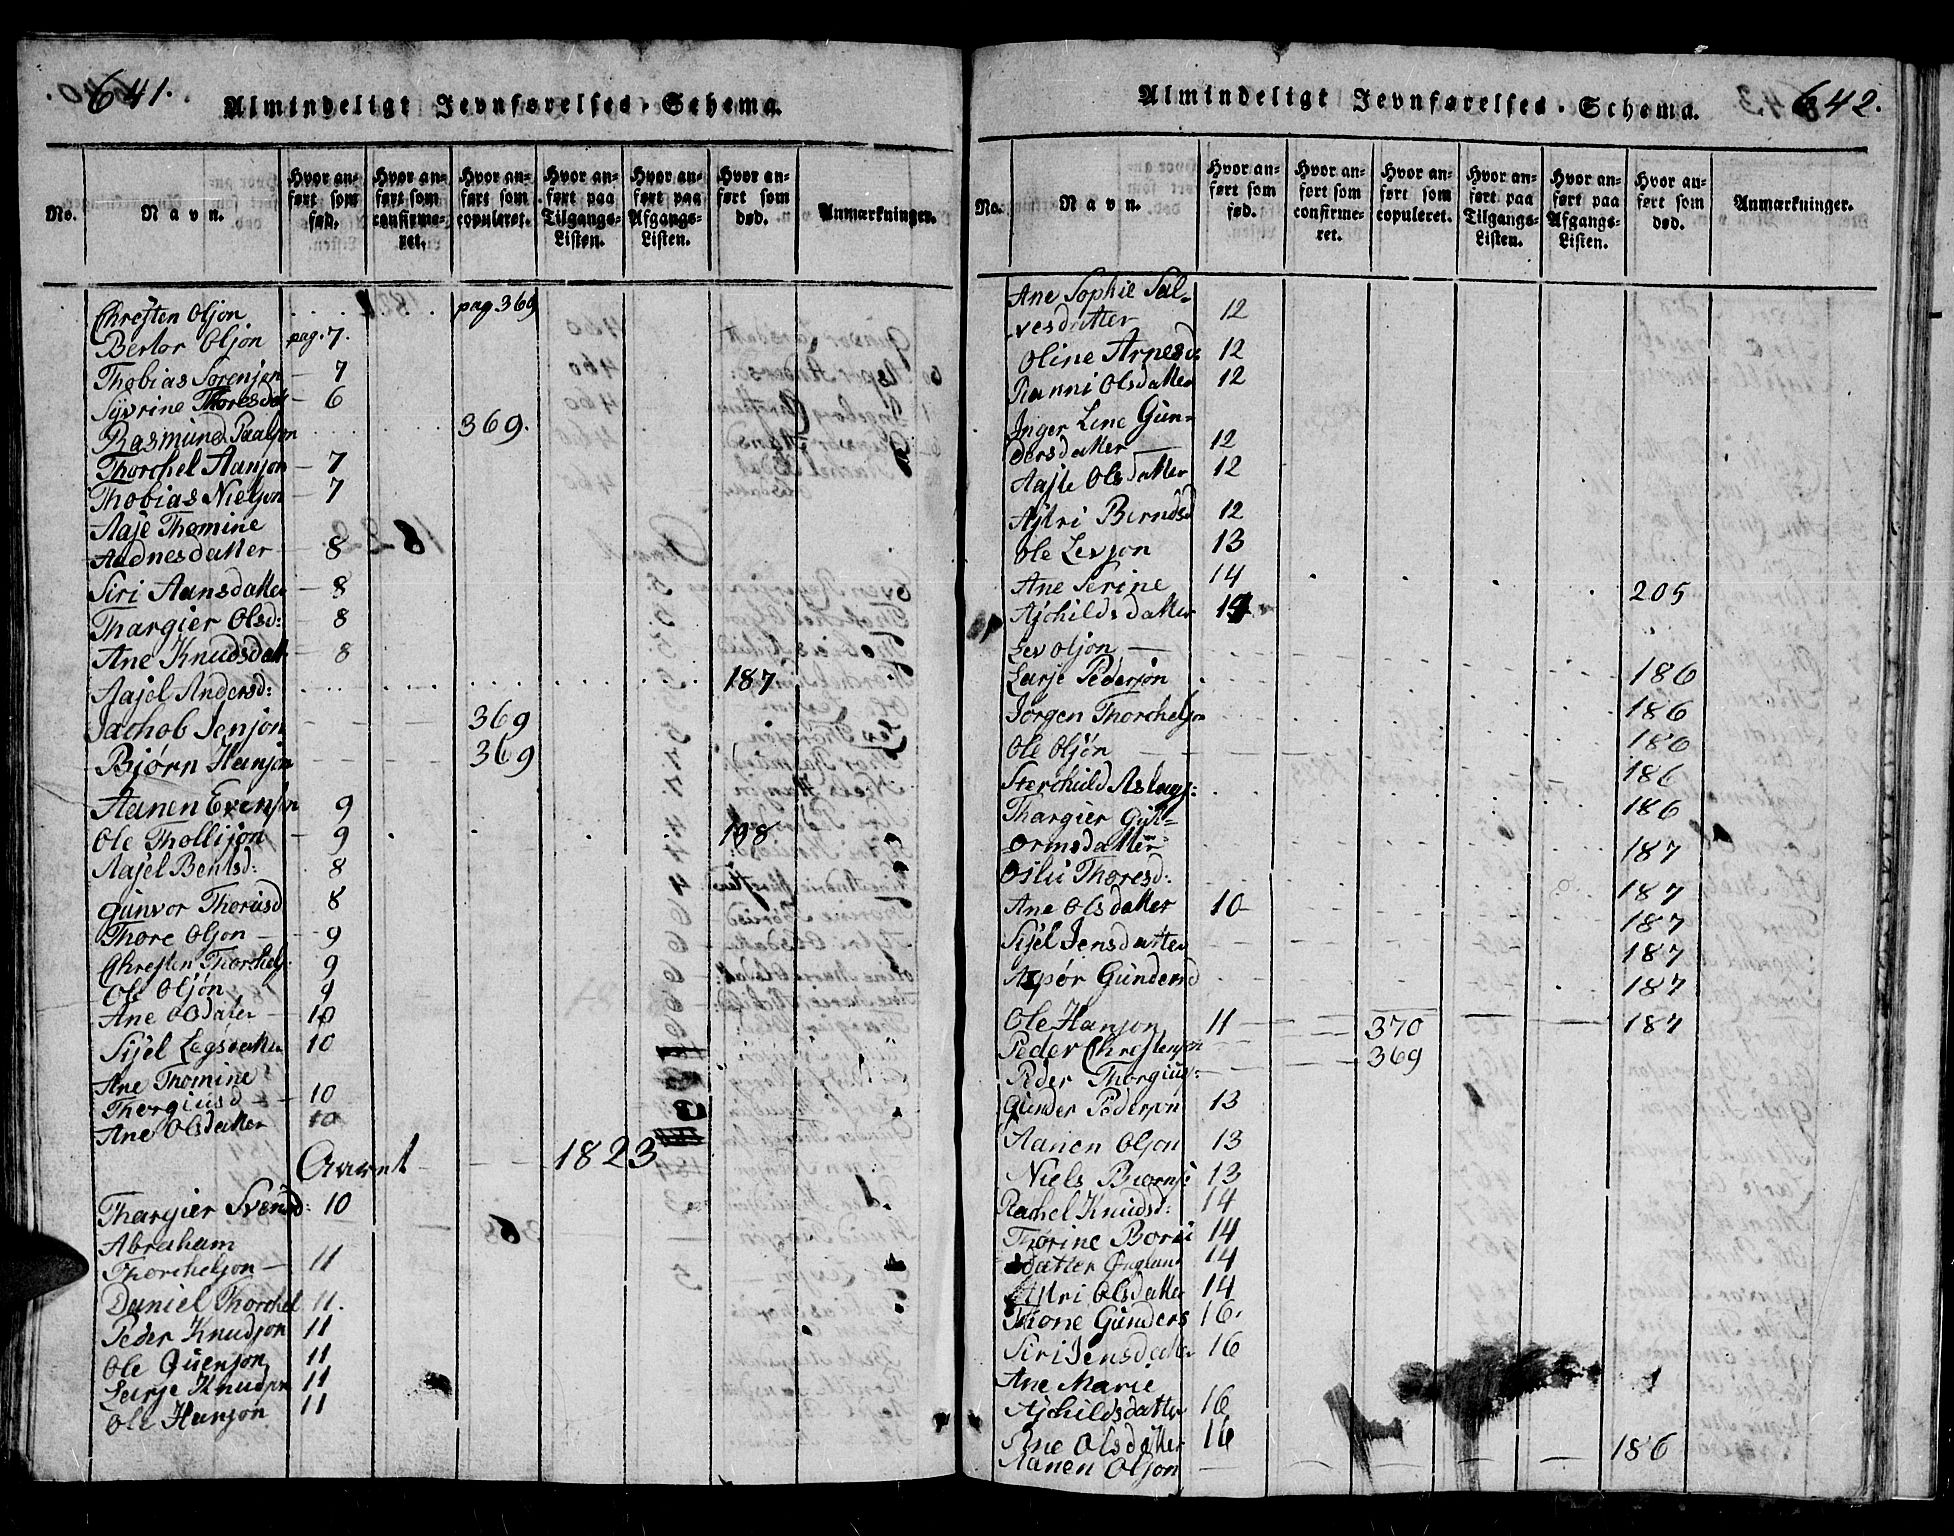 641.
Almindeligt Jevnførelses-Schema.
No.
Navn.
Hvor anført som fød.
Hvor anført som confirmeret.
Hvor anført som copuleret.
Hvor anført paa Tilgangs-Listen.
Hvor anført paa Afgangs-Listen.
Hvor anført som død.
Anmærkninger.
Chresten Olson pag. 369
Berler Olson pag. 7.
Thobias Sorensen 7
Syvrine Thoresdat 6
Rasmund Paalson 369.
Thorchel Aanson 7
Thobias Nielson 7
Aase Thomine
Aadnesdatter 8
Siri Aansdatter 8
Thargier Olsd: 8
Ane Knudsdatt 8
Aasel Andersd: 187
Jachob Jenson 369
Bjørn Hanson 369
Aanen Evenson 9
Ole Thollison 9 198
Aasel Bentsd: 8
Gunvor Thoriisd 8
Thore Olson 9
Chresten Thorchels: 9
Ole Olsøn 9
Ane Olsdater 10
Sisel Legsdatter 10
Ane Thomine
Thorgiusd 10
Ane Olsdatter 10
Aaret 1823
Thargier Svensd: 10
Abraham
Thorchelson 11
Daniel Thorchel 11.
Peder Knudson 11
Ole Quenson 11
Larse Knudsøn 11
Ole Hanson 11
Almindeligt Jevnførelses-Schema.
642.
No.
Navn.
Hvor anført som fød.
Hvor anført som confirmeret.
Hvor anført som copuleret.
Hvor anført paa Tilgangs-Listen.
Hvor anført paa Afgangs-Listen.
Hvor anført som død.
Anmærkninger.
Ane Sophie Sal-
vesdatter 12
Oline Arnesd: 12
Ranni Olsdatter 12
Inger Line Gun-
dersdatter 12
Aaste Olsdatter 12
Astri Berndsd 12
Ole Levson 13
Ane Serine 14
Aschildsdatter 14 205
Lev Olson
Larse Pederson 186
Jørgen Thorchelson 186
Ole Olsøn 186
Sterchuld Aslags: 186
Thargier Gut-
ormsdatter 186
Oslii Thoresd: 187
Ane Olsdatter 10 187
Sisel Jensdatter 187
Aspør Gundersd 187
Ole Hanson 11 370 187
Peder Chrestenson 369
Peder Thorgius:
Gunder Pederson 13
Aanen Olson 13
Niels Biørns: 13
Rachel Knudsd: 14
Thorine Borii 14
datter 14
Astri Olsdatter 14
Thone Gunders 16.
Siri Jensdatter 16
Ane Marie
Aschildsdatter 16
Ane Olsdatter 16
Aanen Olson 186